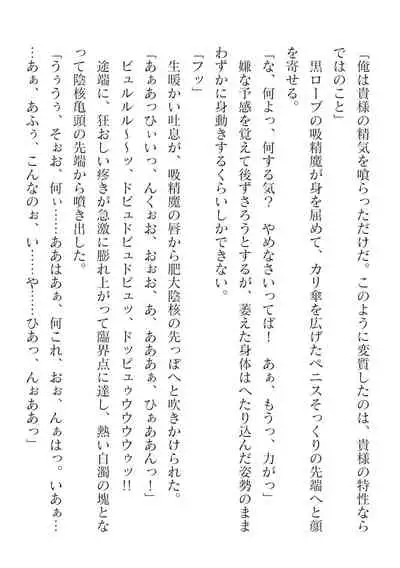 「俺は貴様の精気を喰らっただけだ。このように変質したのは、貴様の特性なら
ではのこと」
　黒ローブの吸精魔が身を屈めて、カリ傘を広げたペニスそっくりの先端へと顔
を寄せる。
「な、何よっ、何する気？　やめなさいってば！　あぁ、もうっ、力がっ」
　嫌な予感を覚えて後ずさろうとするが、萎えた身体はへたり込んだ姿勢のまま
わずかに身動きするくらいしかできない。
「フッ」
　生暖かい吐息が、吸精魔の唇から肥大陰核の先っぽへと吹きかけられた。
「あぁあっひぃいっ、んくぉお、おぉお、あ、あああぁ、ひぁああんっ！」
　ビュルルル～～ッ、ドピュドピュドピュッ、ドッピュゥウウウウゥッ!!
　途端に、狂おしい疼きが急激に膨れ上がって臨界点に達し、熱い白濁の塊とな
って陰核亀頭の先端から噴き出した。
「うぅうぅ、そぉお、何ぃ……ああはあぁ、何これ、おぉ、んぁはっ。いあぁ…
…あぁ、あふぅ、こんなのぉ、い……や……ひあっ、んぉああっ」